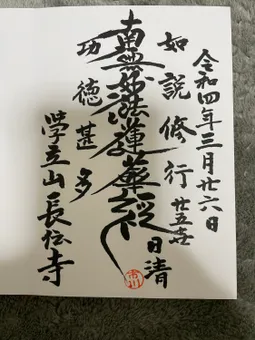 令和四年三月廿六日
如説修行
廿五世
日清
南無妙法蓮華経
功徳甚多
学立山長伝寺
市川